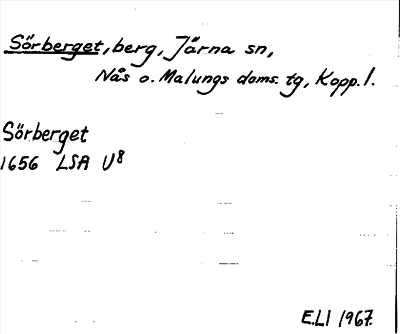 Sörberget, berg, Järna sn,
Nås o. Malungs doms. tg, Kopp. l.
Sörberget
1656 LSA U8
E.LI 1967.